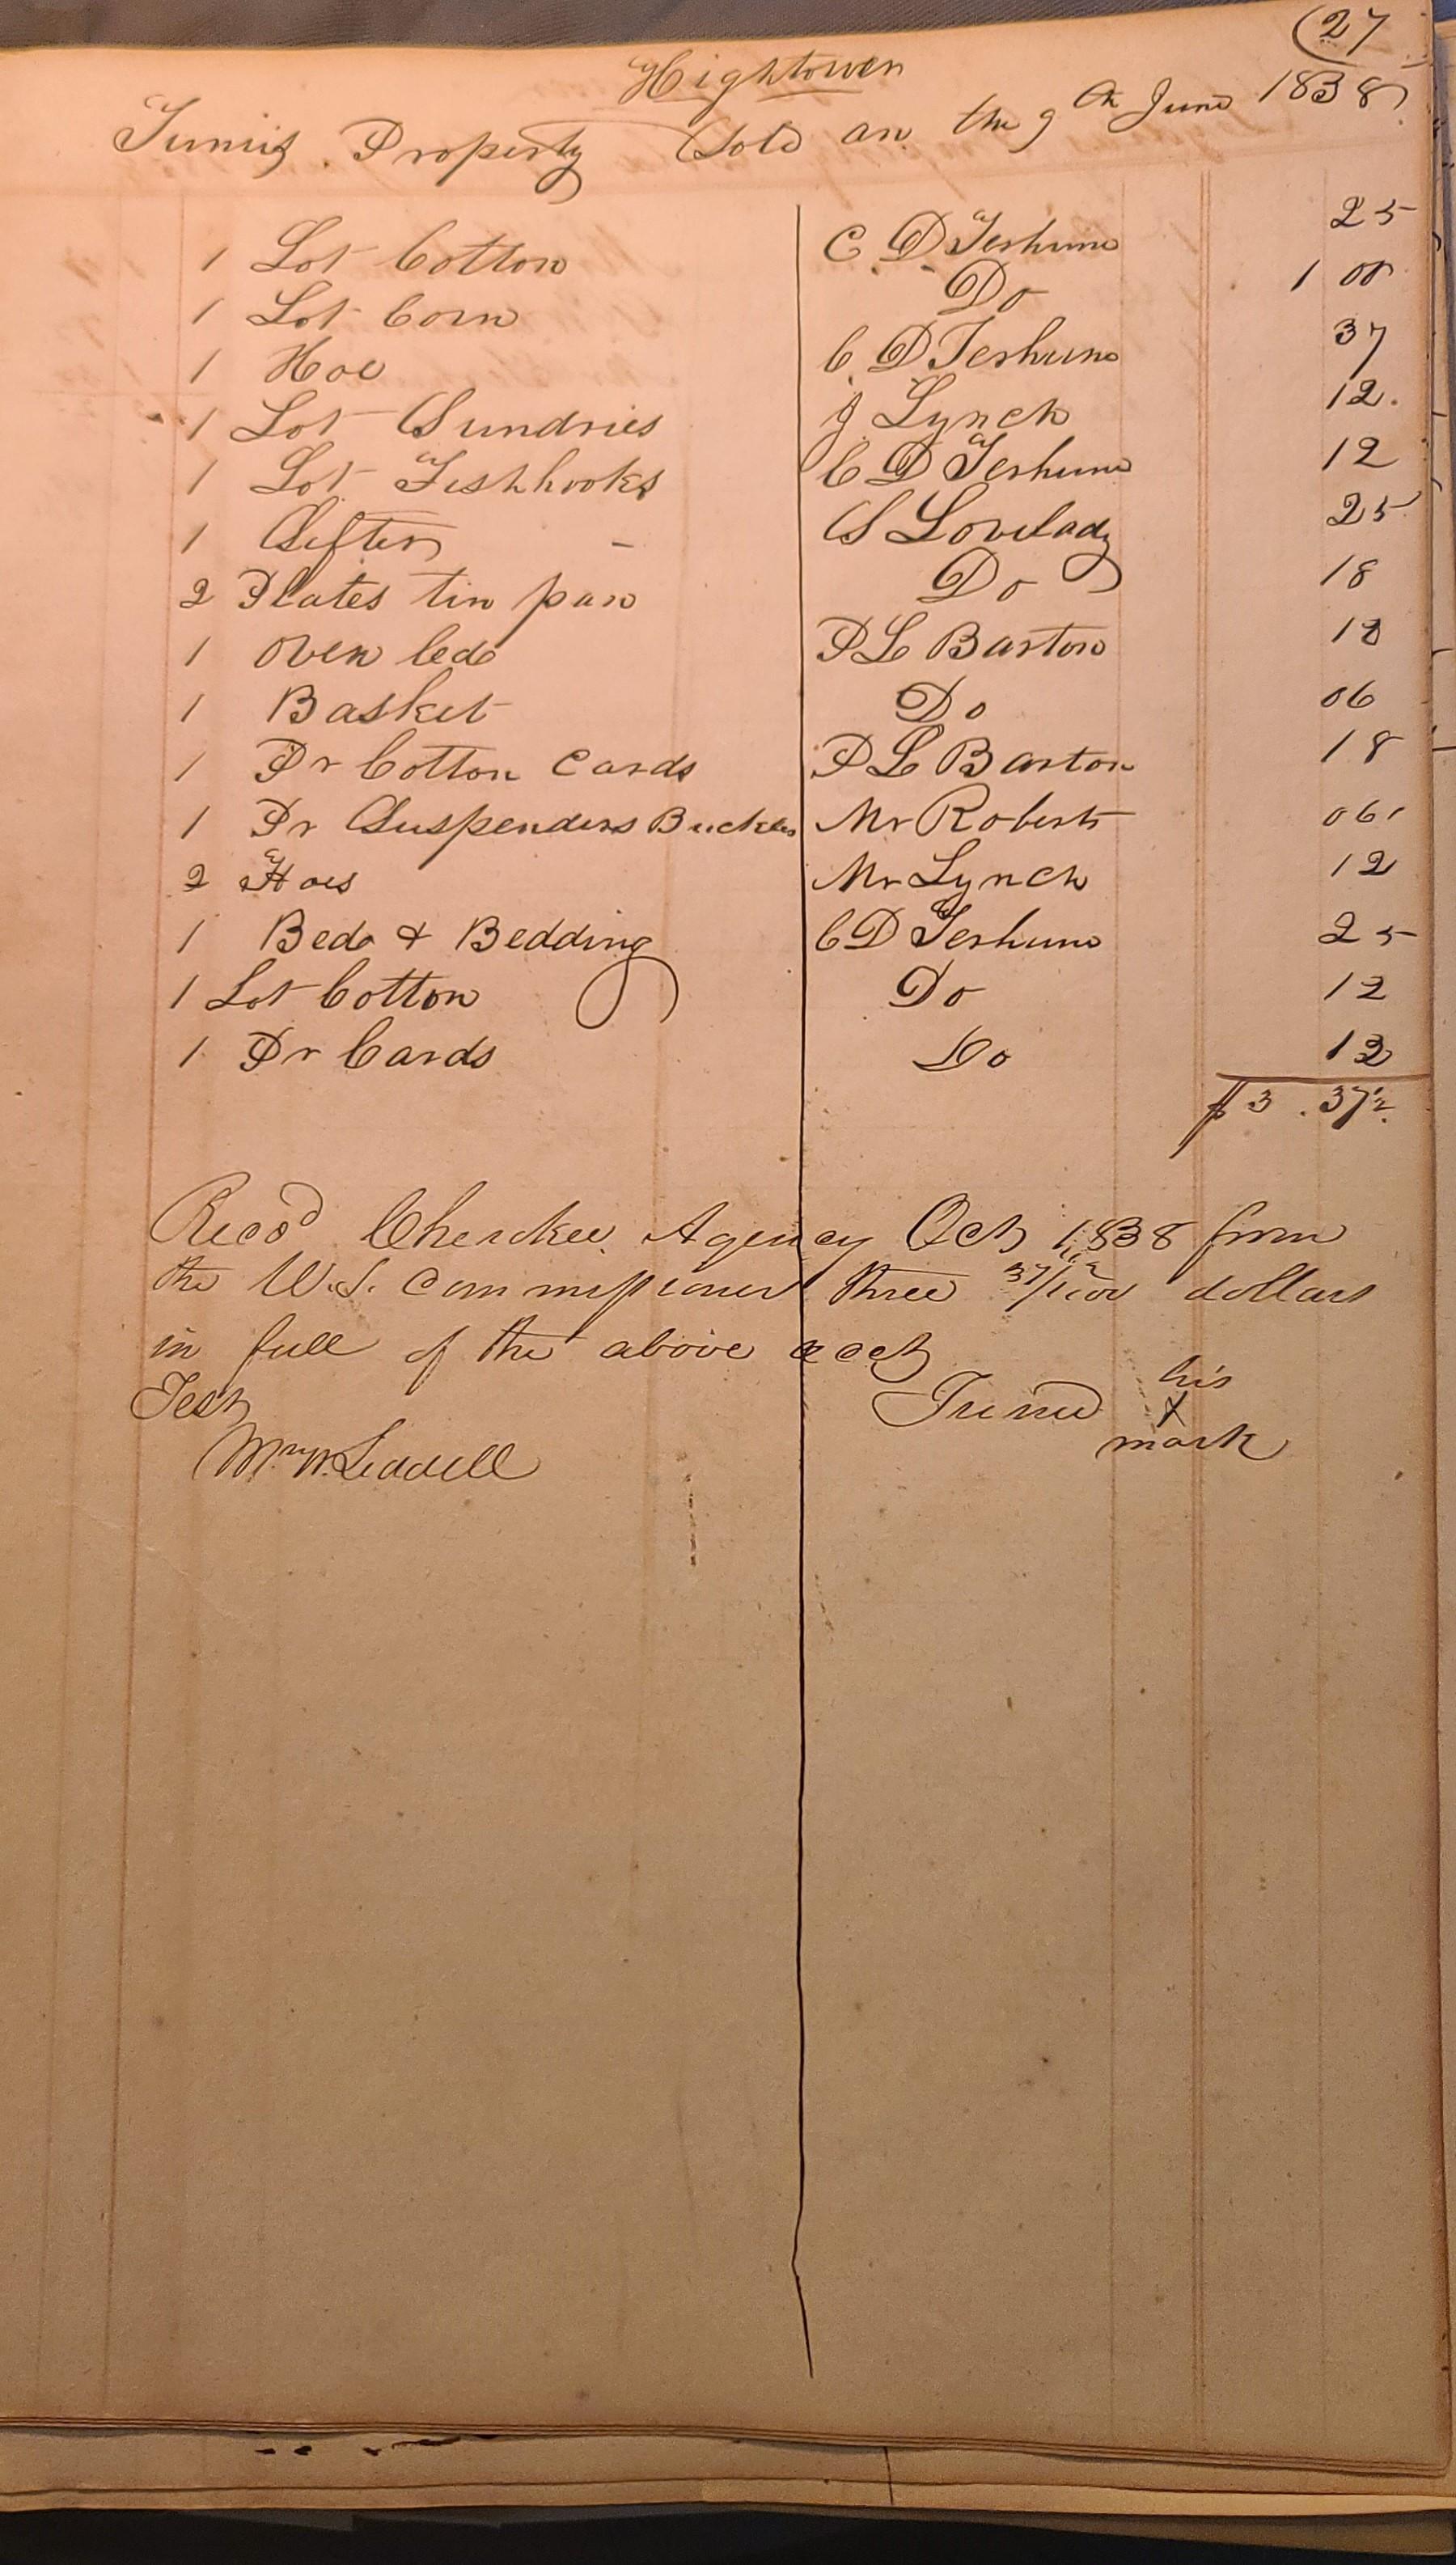 (27
Hightower
Junies Property Sold on the 9th June 1838
1 Lot Cotton C D Terhune 25
1 Lot Corn Do 1 00
1 Hoe C D Terhune 37
1 Lot Sundries J Lynch 12.
1 Lot Fishhooks C D Terhune 12
1 Sifter - S Lovelady 25
2 Plates tin pan Do 18
1 oven led P L Barton 12
1 Basket Do 06
1 Pr Cotton Cards P L Barton 18
1 Pr Suspenders Buckles Mr Roberts 06
2 Hoes Mr Lynch 12
1 Bed & Bedding C D Terhune 25
1 Lot Cotton Do 12
1 Pr Cards Do 12
$ 3 . 37½
Recd Cherokee Agency Oct 1838 from
the U.S. Commissioner three 37½/100 dollars
in full of the above acct
Test his
Junie X
mark
Wm W. Liddell